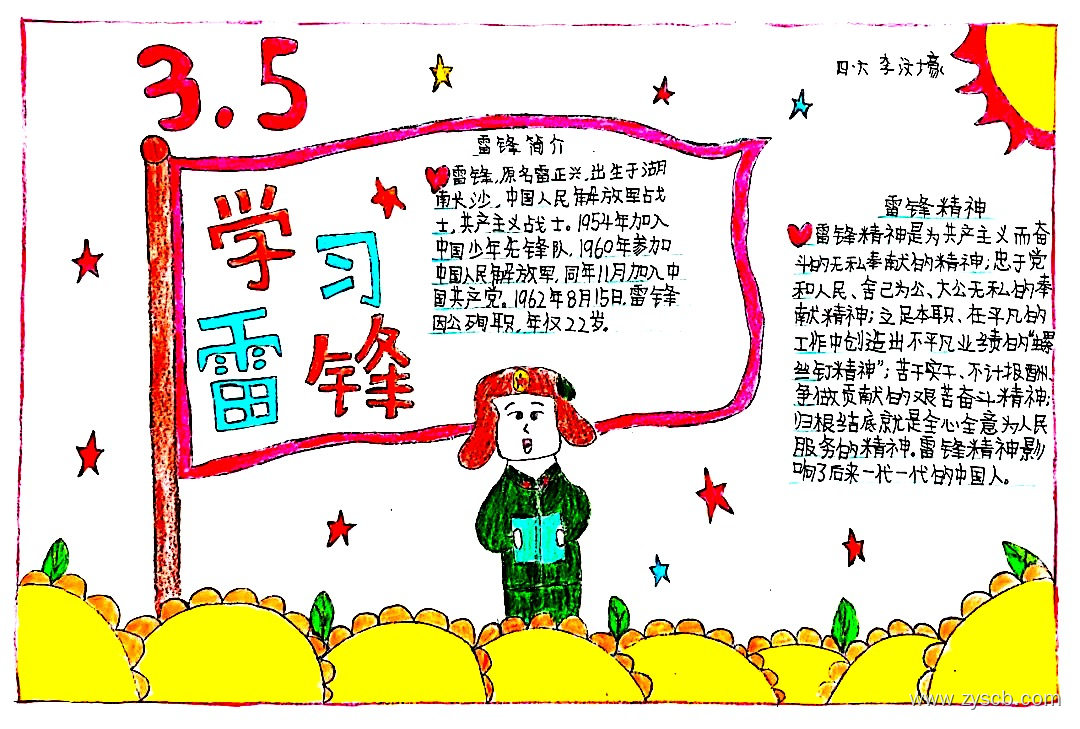 3.5
四·六 李汶壕
学习
雷锋
雷锋简介
雷锋,原名雷正兴,出生于湖
南长沙,中国人民解放军占戈
士,共产主义占戈士。1954年加入
中国少年先锋队,1960年参加
中国人民解放军,同年11月加入中
国共产党。1962年8月15日,雷锋
因公殉职,年仅22岁。
雷锋精神
雷锋精神是为共产主义而奋
斗的无私奉献的精神;忠于党
和人民、舍己为公、大公无私的奉
献精神;立足本职、在平凡的
工作中创造出不平凡业绩的“螺
丝钉精神”;苦干实干、不计报酬、
争做贡献的艰苦奋斗精神;
归根结底就是全心全意为人民
服务的精神。雷锋精神影
响了后来一代一代的中国人。
www.zyscb.com